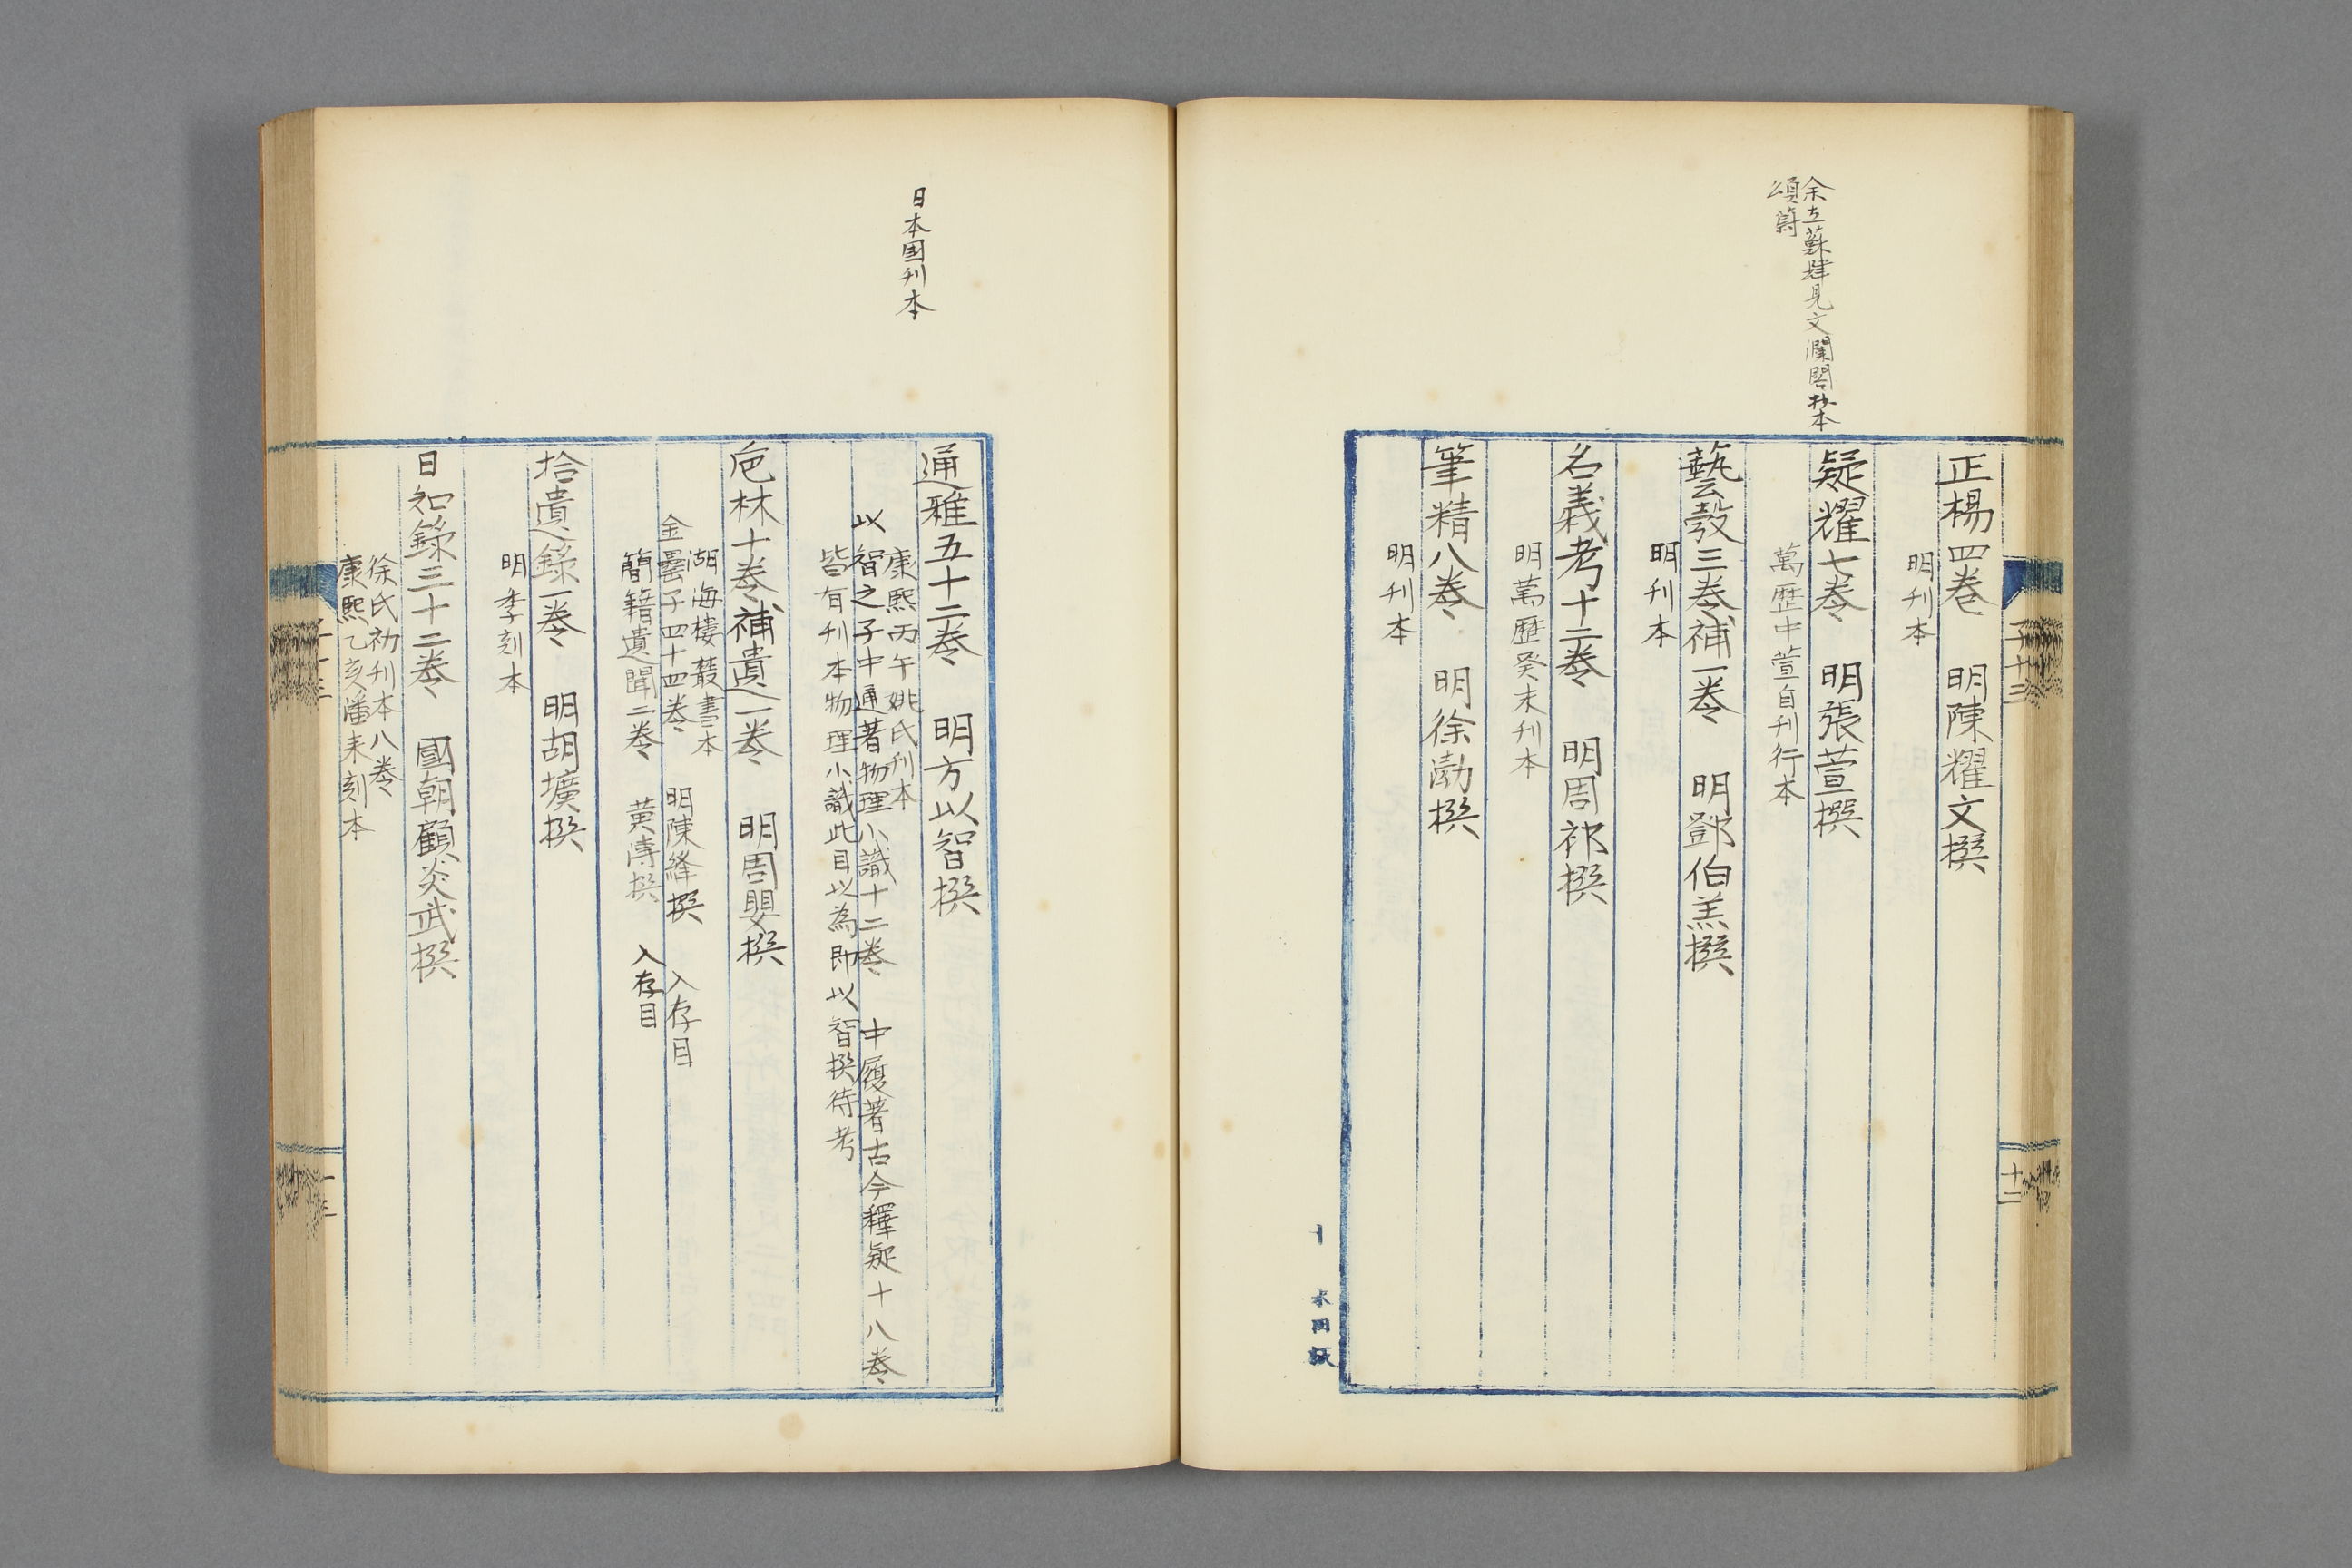 余在蘇肆見文瀾閣抄本
頌蔚
正楊四卷　明陳耀文撰
明刊本
疑耀七卷　明張萱撰
萬歷中萱自刊行本
藝彀三卷補一卷　明鄧伯羔撰
明刊本
名義考十二卷　明周祁撰
明萬歷癸未刊本
筆精八卷　明徐𤊹撰
明刊本
子十三
十二
日本国刊本
通雅五十二卷　明方以智撰
康熙丙午姚氏刊本
以智之子中通著物理小識十二卷　中履著古今釋疑十八卷
皆有刊本物理小識此目以為即以智撰待考
卮林十卷補遺一卷　明周嬰撰
湖海樓叢書本
金罍子四十四卷　明陳絳撰　入存目
簡籍遺聞二卷　黃溥撰　入存目
拾遺錄一卷　明胡爌撰
明季刻本
日知錄三十二卷　國朝顧炎武撰
徐氏初刊本八卷
康熙乙亥潘耒刻本